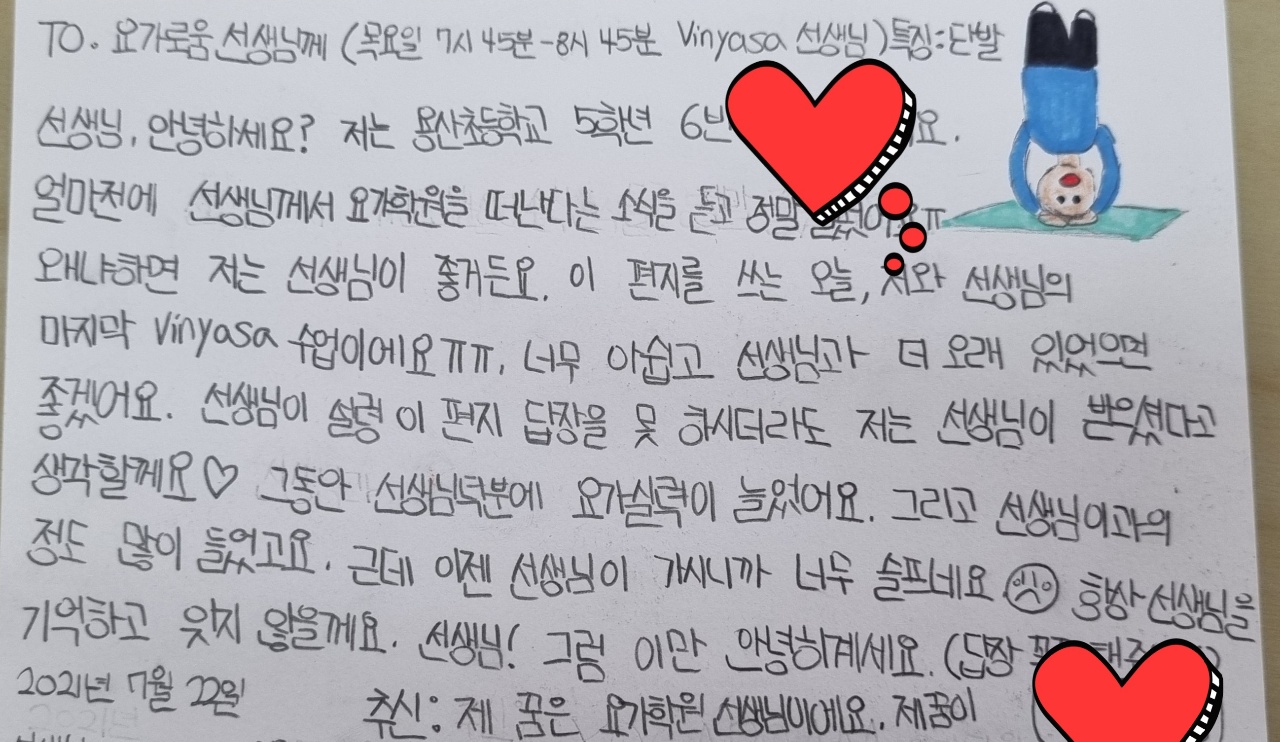 TO. 요가로움 선생님께 (목요일 7시 45분-8시 45분 Vinyasa 선생님) 특징:단발
선생님, 안녕하세요? 저는 용산초등학교 5학년 6반 요.
얼마전에 선생님께서 요가학원을 떠난다는 소식을 듣고 정말
왜냐하면 저는 선생님이 좋거든요. 이 편지를 쓰는 오늘, 저와 선생님의
마지막 Vinyasa 수업이에요ㅠㅠ. 너무 아쉽고 선생님과 더 오래 있었으면
좋겠어요. 선생님이 설령 이 편지 답장을 못 하시더라도 저는 선생님이 받으셨다고
생각할께요♡ 그동안 선생님덕분에 요가실력이 늘었어요. 그리고 선생님이과의
정도 많이 들었고요. 근데 이젠 선생님이 가시니까 너무 슬프네요 항상 선생님을
기억하고 잊지 않을께요. 선생님! 그럼 이만 안녕하계세요. (답장
2021년 7월 22일 추신: 제 꿈은 요가학원 선생님이에요. 제꿈이